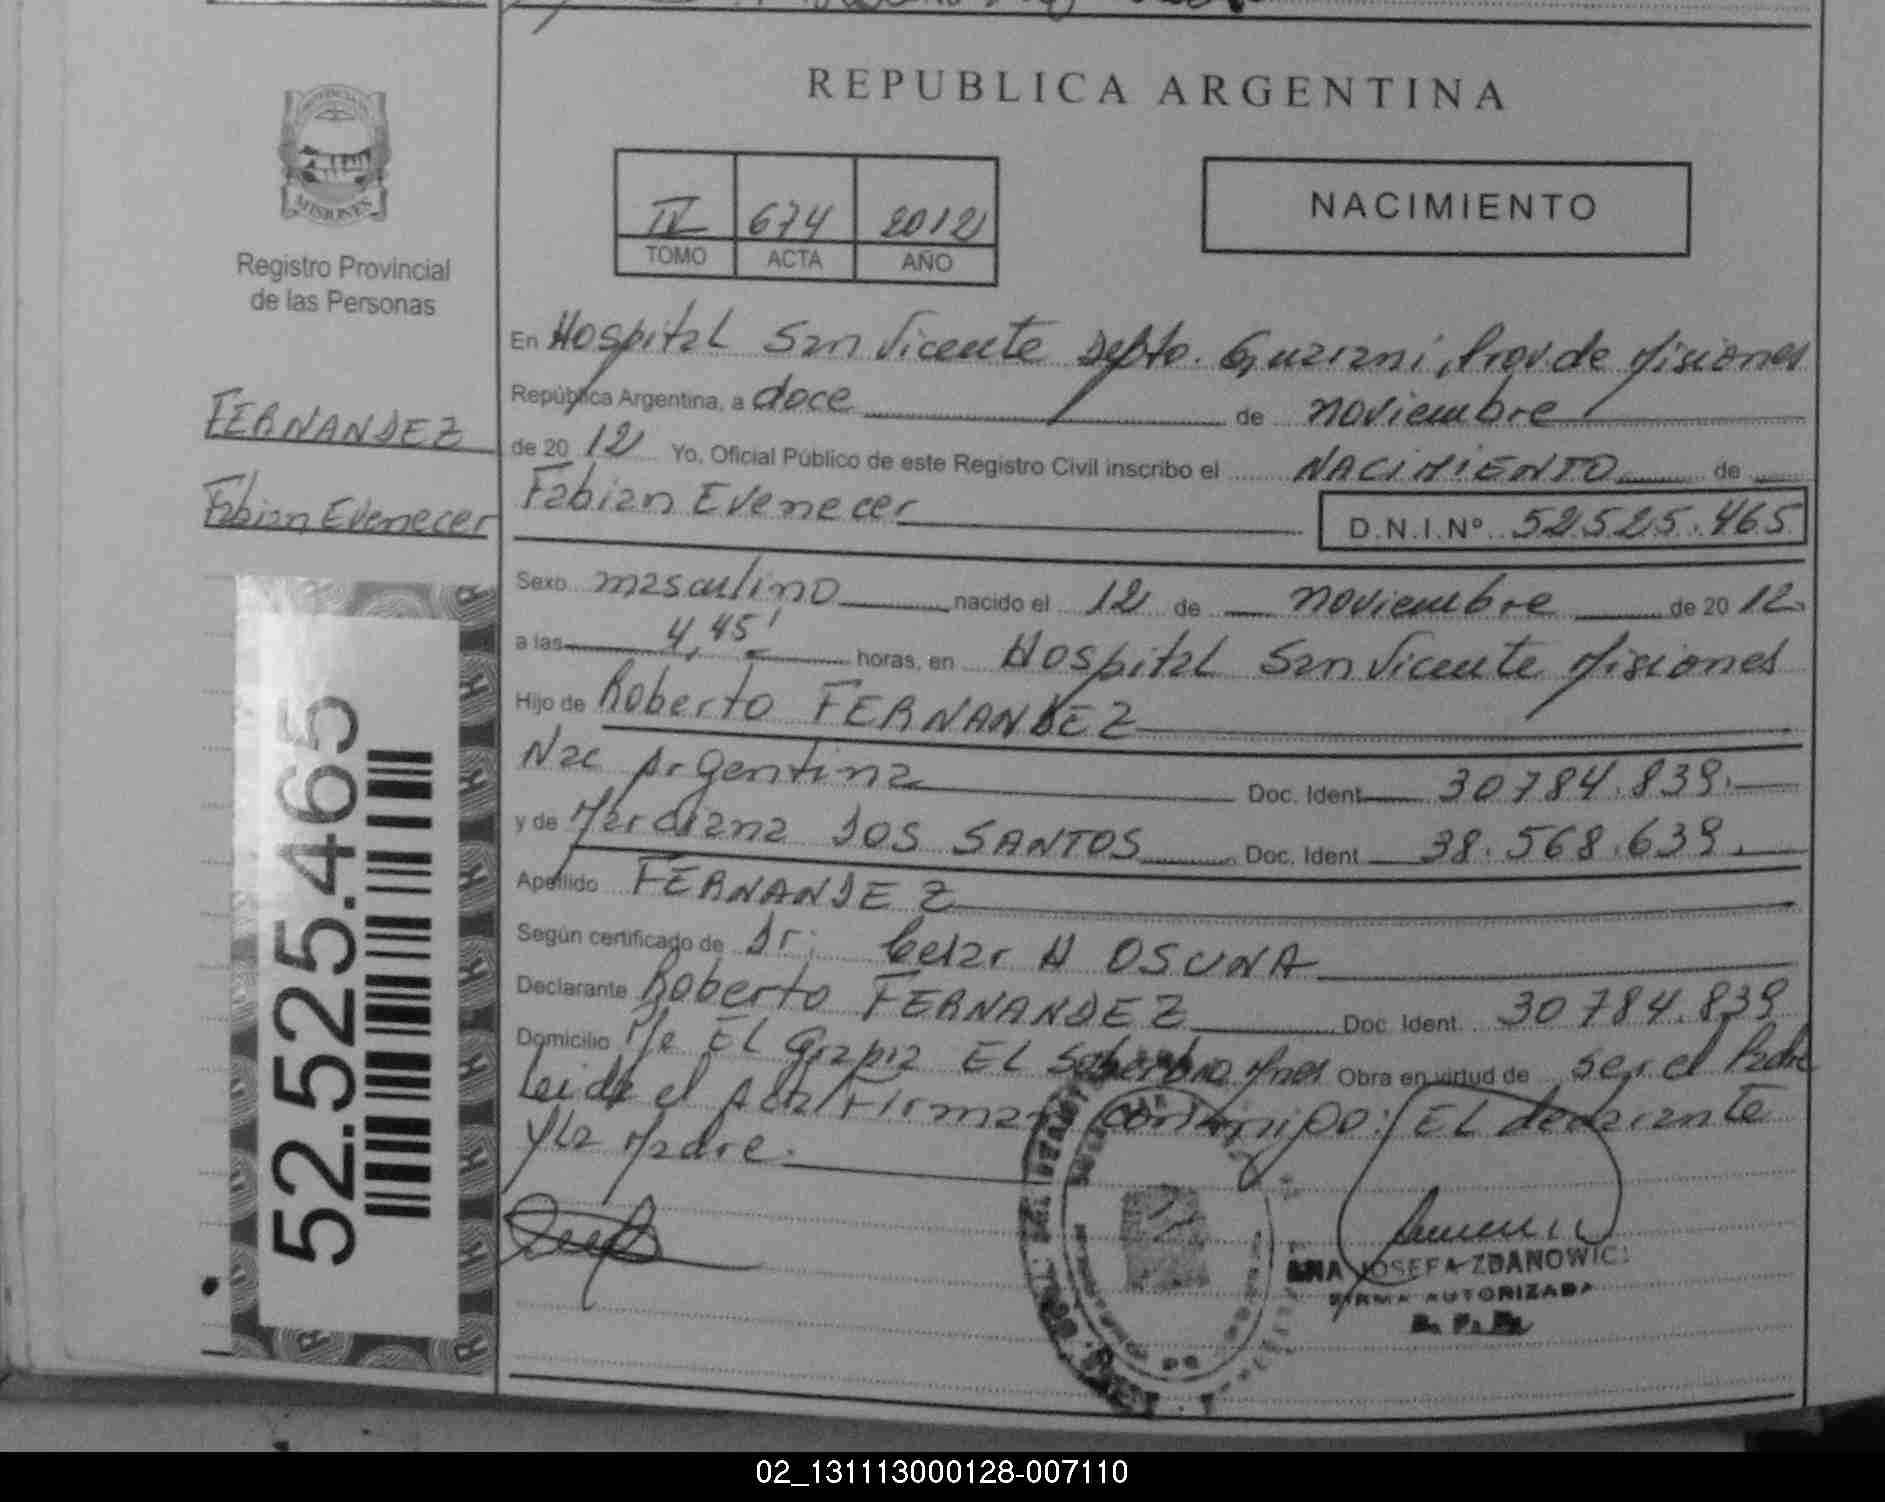 REPUBLICA ARGENTINA
PROVINCIA DE
MISIONES
Registro Provincial
de las Personas
FERNANDEZ
Fabian Evenecer
52.525.465
IV 674 2012
TOMO ACTA AÑO
NACIMIENTO
En Hospital San Vicente Depto. Guarani, Prov. de Misiones
República Argentina, a doce de noviembre
de 20 12 Yo, Oficial Público de este Registro Civil inscribo el NACIMIENTO de
Fabian Evenecer D.N.I.Nº 52.525.465
Sexo masculino nacido el 12 de noviembre de 20 12
a las 4,45' horas, en Hospital San Vicente Misiones
Hijo de Roberto FERNANDEZ
Nac Argentina Doc. Ident 30784.839.
y de Marciana DOS SANTOS Doc. Ident 38.568.639.
Apellido FERNANDEZ
Según certificado de Dr: Celar H OSUNA
Declarante Roberto FERNANDEZ Doc. Ident. 30784.839
Domicilio EL Soberbio Mnes Obra en virtud de ser el Padre
Leida el Acta Firman conmigo: EL declarante
y La Madre.
ANA JOSEFA ZDANOWICZ
FIRMA AUTORIZADA
02_131113000128-007110